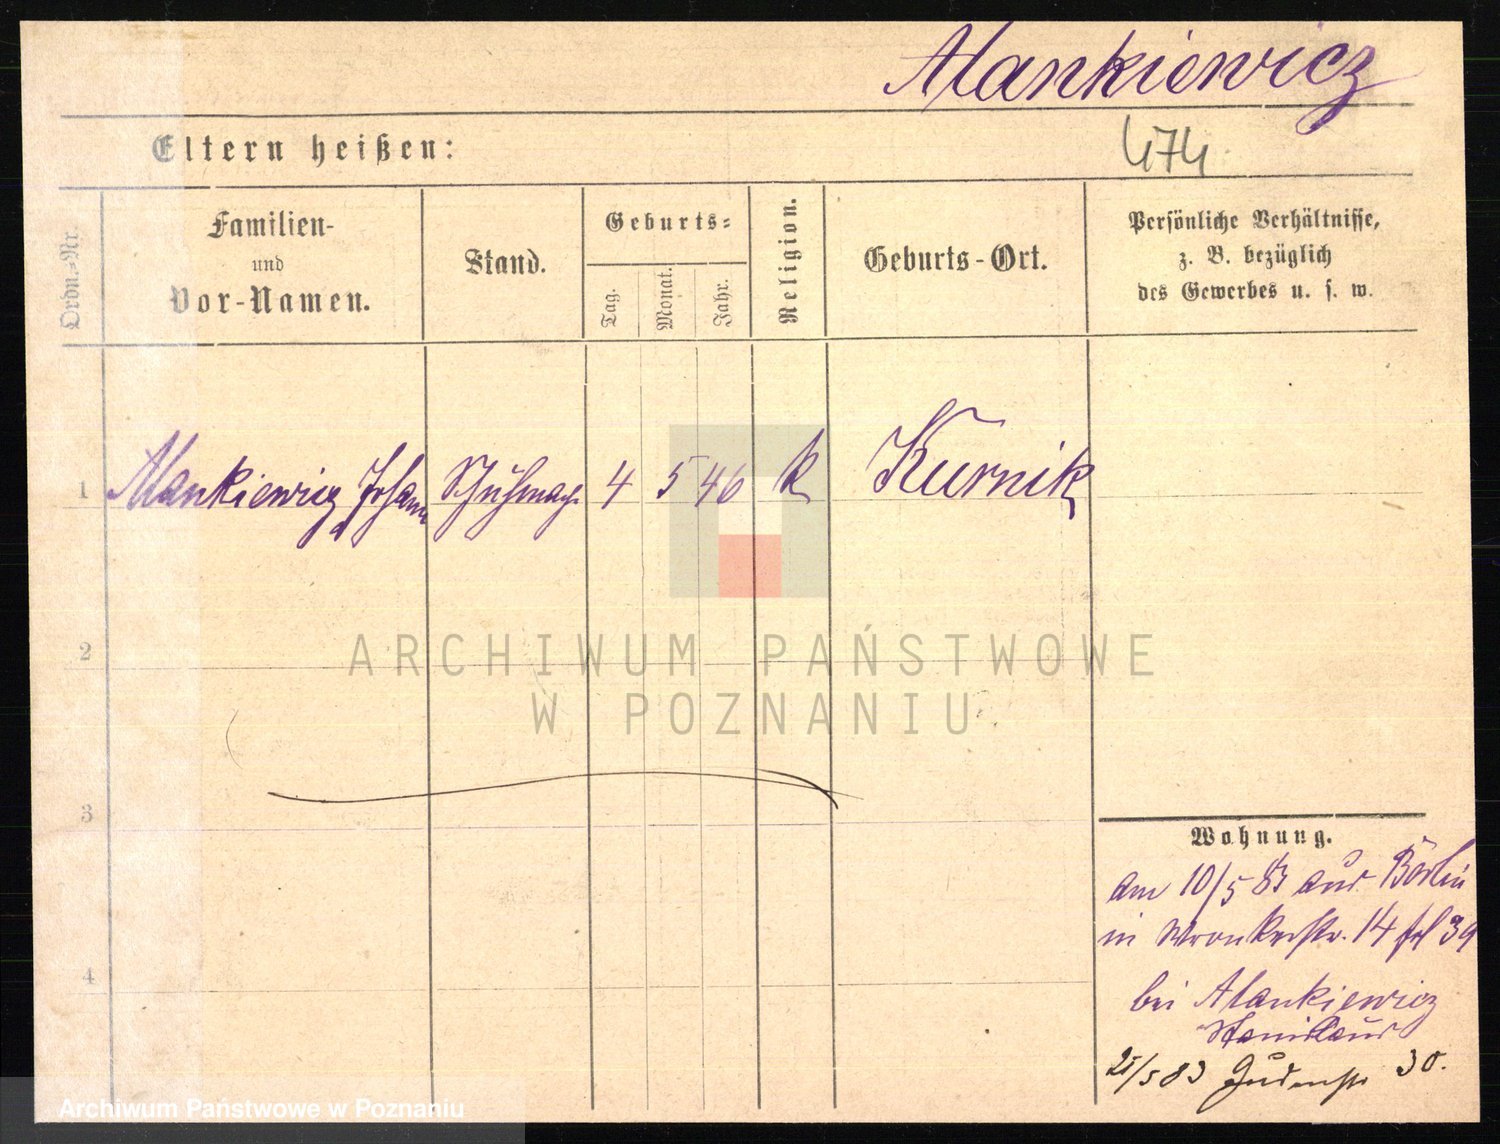 Alankiewicz
Eltern heißen:
474
Ordn.-Nr.
Familien-
und
Vor-Namen.
Stand.
Geburts-
Tag.
Monat.
Jahr.
Religion.
Geburts-Ort.
Persönliche Verhältnisse,
z. B. bezüglich
des Gewerbes u. s. w.
1 Alankiewicz Johann Schuhmach 4 5 46 k Kurnik
ARCHIWUM PAŃSTWOWE
W POZNANIU
2
3
4
Wohnung.
am 10/5 83 aus Berlin
in Wronkerstr. 14 fol 39
bei Alankiewicz
Stanislaus
25/5 83 Judenstr 30.
Archiwum Państwowe w Poznaniu